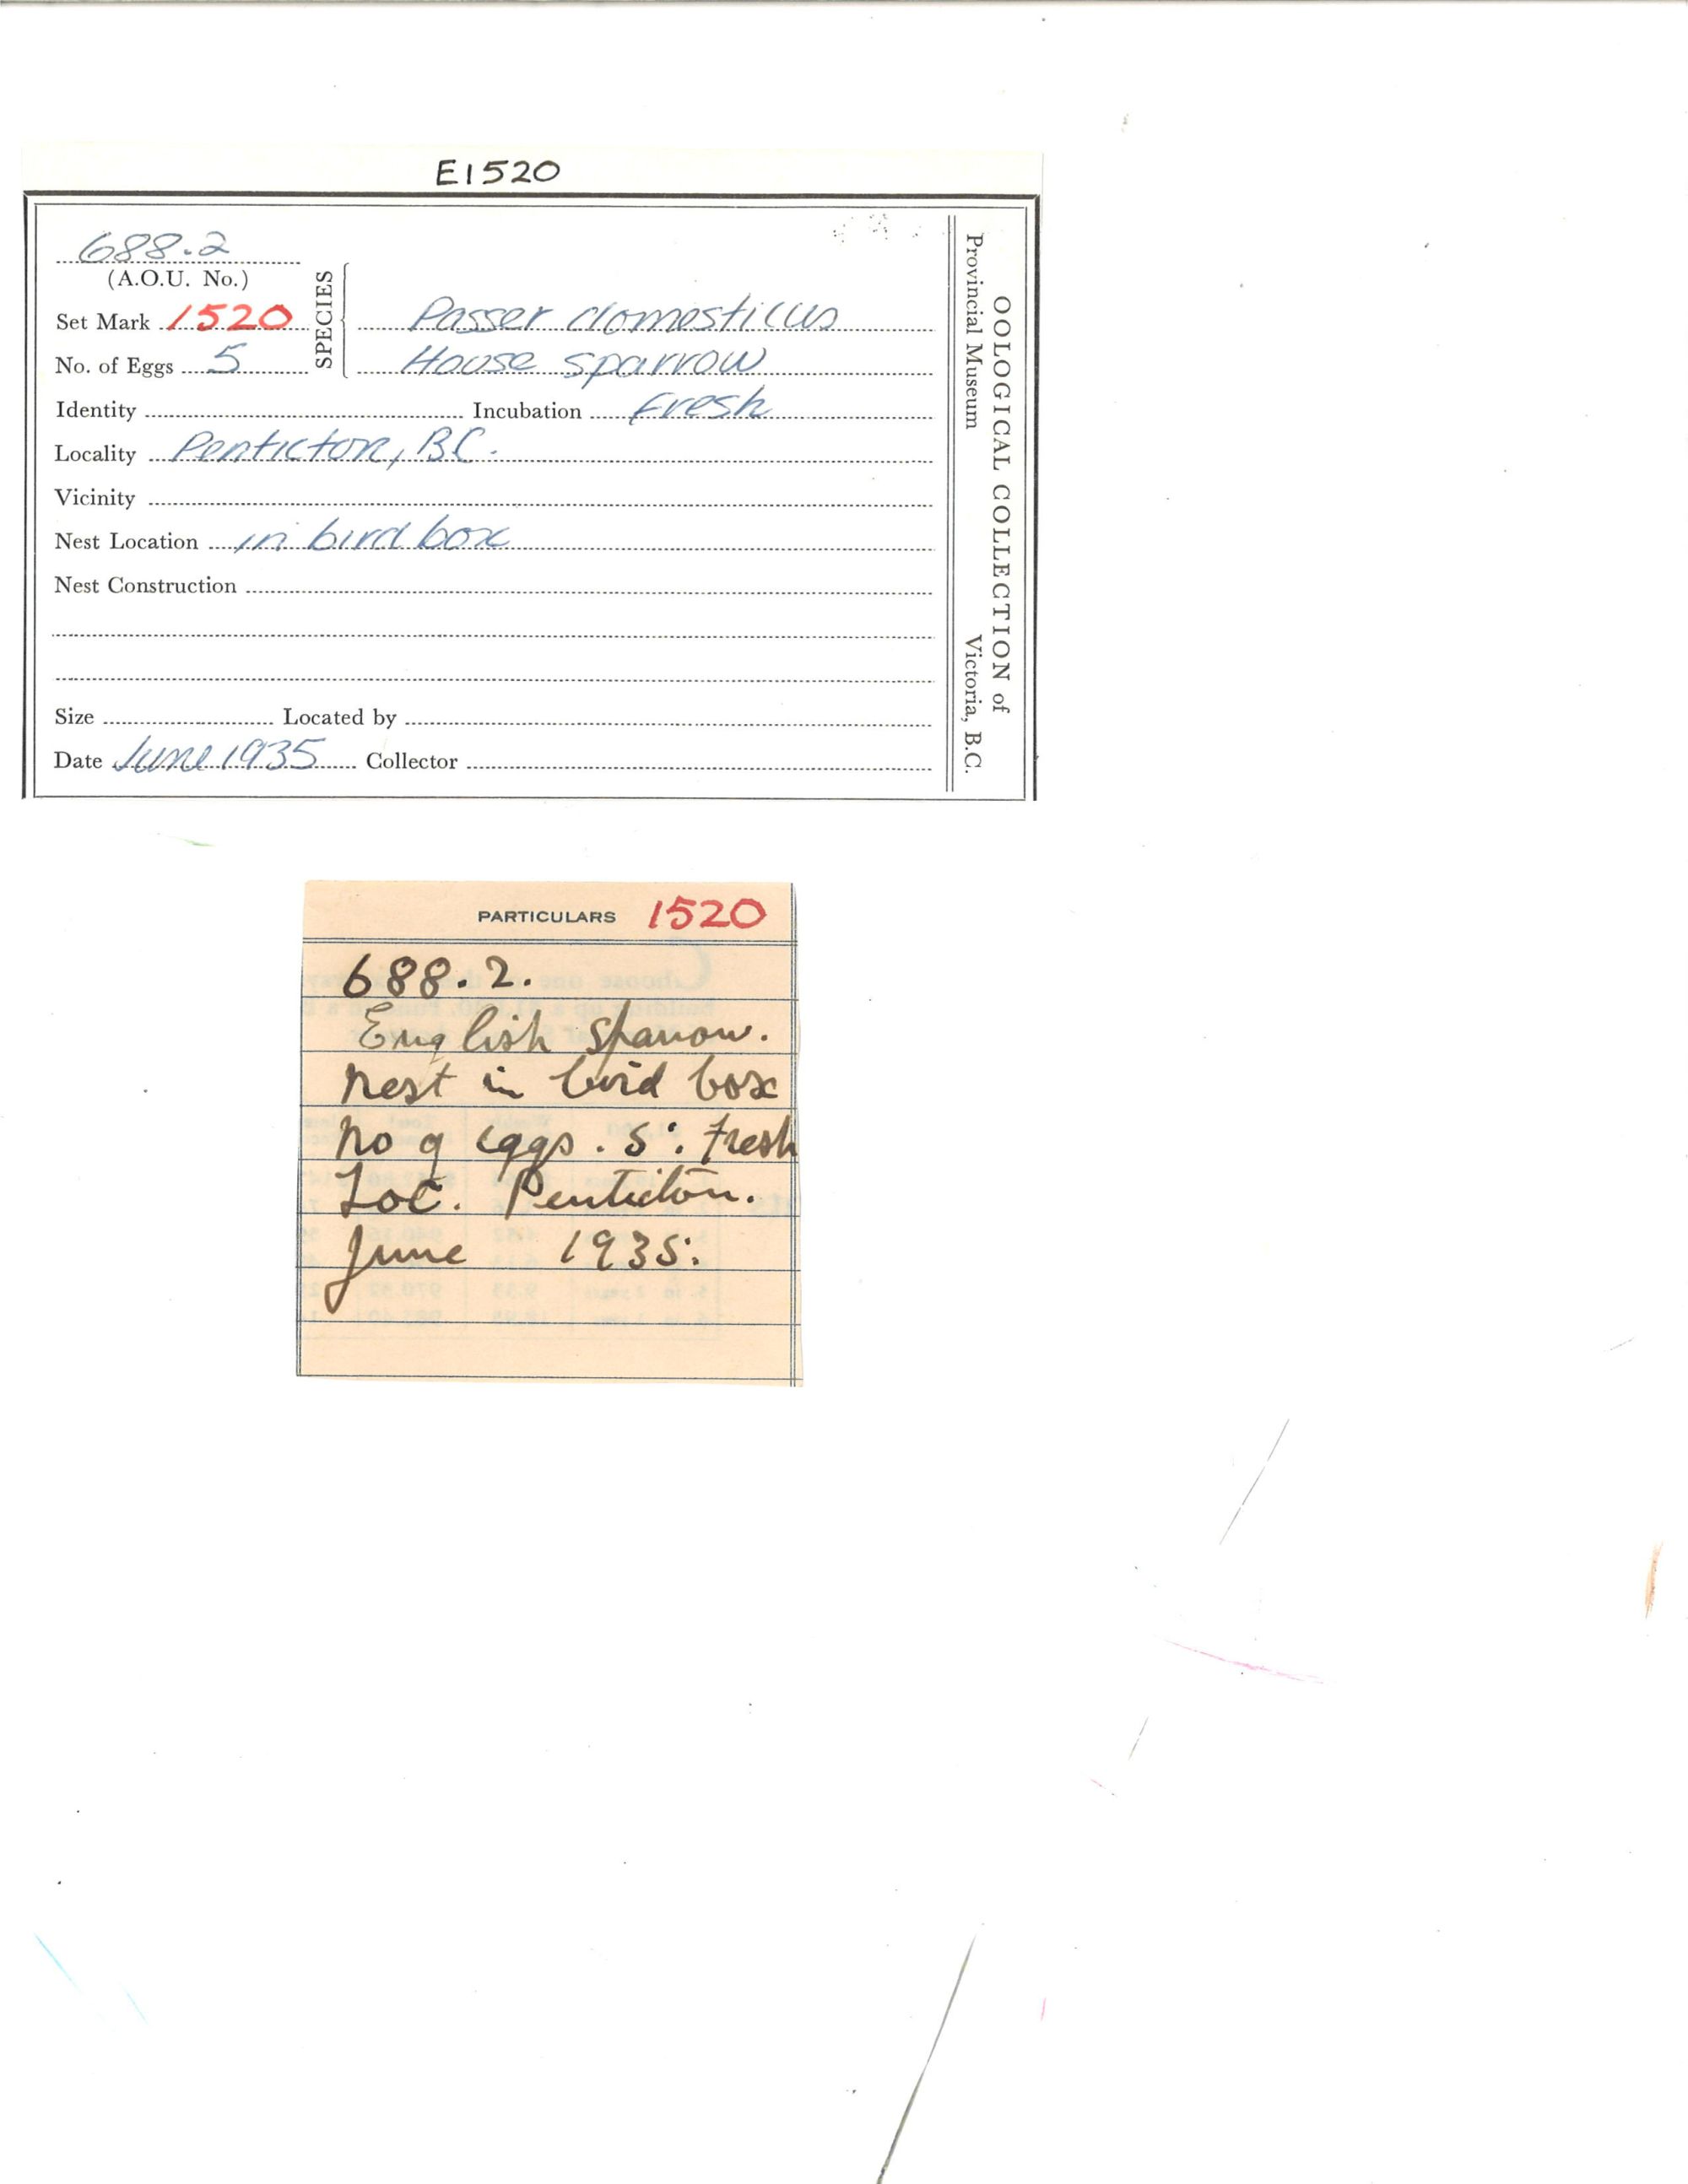 E1520
688.2
(A.O.U. No.)
Set Mark 1520
No. of Eggs 5
SPECIES
Passer domesticus
House sparrow
Identity Incubation Fresh
Locality Penticton, BC.
Vicinity
Nest Location in bird box
Nest Construction
Size Located by
Date June 1935 Collector
OOLOGICAL COLLECTION of
Provincial Museum Victoria, B.C.
PARTICULARS 1520
688.2.
English Sparrow.
Nest in bird box
No of eggs. 5. Fresh
Loc. Penticton.
June 1935.